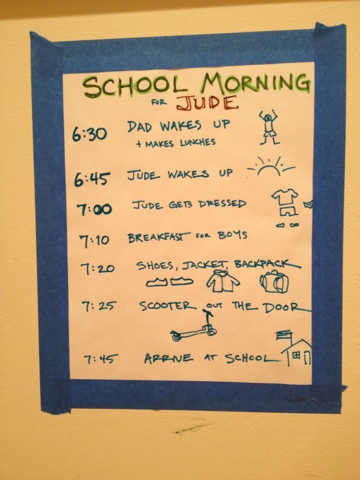 SCHOOL MORNING
FOR JUDE
6:30 DAD WAKES UP
+ MAKES LUNCHES
6:45 JUDE WAKES UP
7:00 JUDE GETS DRESSED
7:10 BREAKFAST FOR BOYS
7:20 SHOES, JACKET, BACKPACK
7:25 SCOOTER OUT THE DOOR
7:45 ARRIVE AT SCHOOL